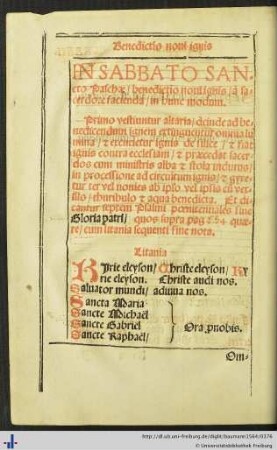 Benedictio noui ignis
IN SABBATO SAN-
cto Paschæ / benedictio noui ignis / a sa-
cerdote facienda / in hunc modum.
Primo vestiuntur altaria / deinde ad be-
nedicendum ignem extinguuntur omnia lu
mina / & excutietur ignis de silice / & fiat
ignis contra ecclesiam / & præcedat sacer-
dos cum ministris alba & stola indutus /
in processione ad circuitum ignis / & gyre-
tur ter vel nouies ab ipso vel ipsis cū vexil-
lis / thuribulo & aqua benedicta. Et di-
cantur septem psalmi penitentiales sine
Gloria patri / quos supra pag quæ-
re / cum litania sequenti sine nota.
Litania
Kyrie eleyson / Christe eleyson / Ky
rie eleyson. Christe audi nos.
Saluator mundi / adiuua nos.
Sancta Maria
Sancte Michaël
Sancte Gabriel
Sancte Raphaël /
Ora pnobis.
Om-
http://dl.ub.uni-freiburg.de/diglit/baumann1564/0376
© Universitätsbibliothek Freiburg